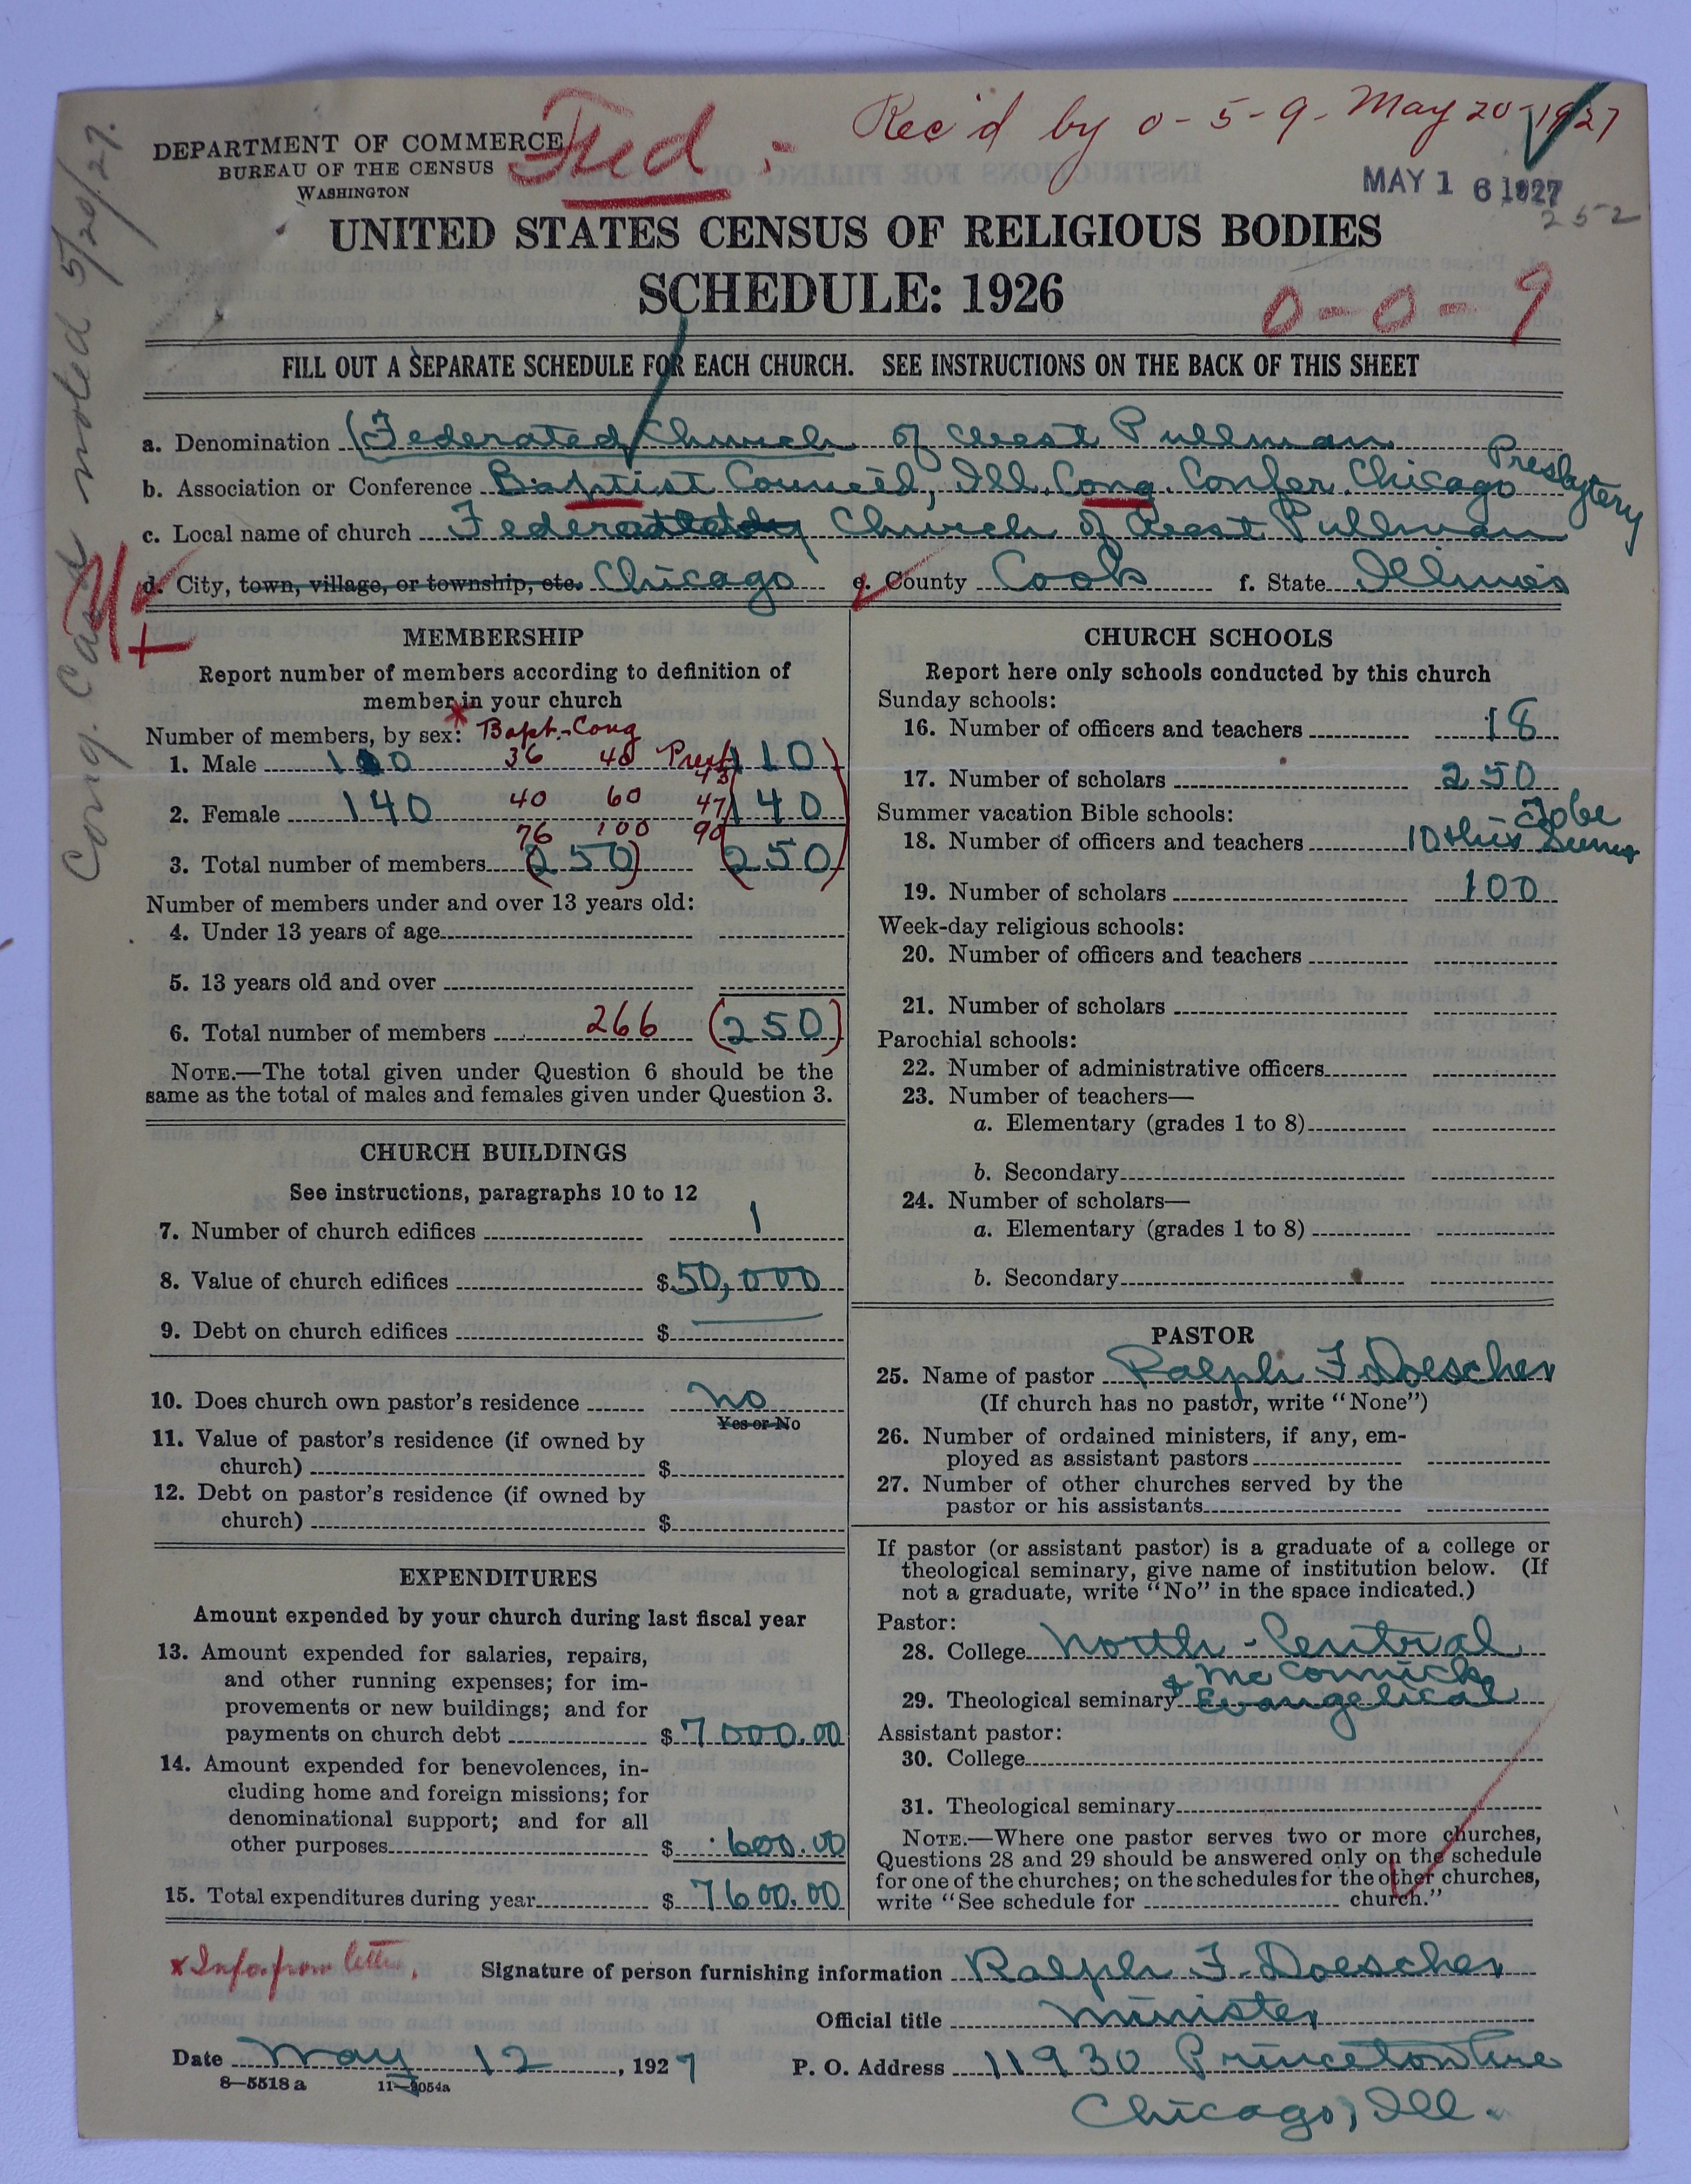 Fed.
Rec'd by 0-5-9- May 20-1927
DEPARTMENT OF COMMERCE
BUREAU OF THE CENSUS
WASHINGTON
MAY 16 1927
252
UNITED STATES CENSUS OF RELIGIOUS BODIES
SCHEDULE: 1926
0-0-9
Cong. Card noted 5/20/27.
FILL OUT A SEPARATE SCHEDULE FOR EACH CHURCH. SEE INSTRUCTIONS ON THE BACK OF THIS SHEET
a. Denomination (Federated Church of West Pullman
b. Association or Conference Baptist Council, Ill. Cong. Confer. Chicago Presbytery
c. Local name of church Federated Church of West Pullman
d. City, town, village, or township, etc. Chicago e. County Cook f. State Illinois
MEMBERSHIP
Report number of members according to definition of
member in your church
Number of members, by sex: * Bapt.-Cong Pres
1. Male 110 36 40 43 110
2. Female 140 40 60 47 140
76 100 90
3. Total number of members (250) (250)
Number of members under and over 13 years old:
4. Under 13 years of age
5. 13 years old and over
6. Total number of members 266 (250)
NOTE.—The total given under Question 6 should be the
same as the total of males and females given under Question 3.
CHURCH BUILDINGS
See instructions, paragraphs 10 to 12
7. Number of church edifices 1
8. Value of church edifices $50,000
9. Debt on church edifices $
10. Does church own pastor's residence No
Yes or No
11. Value of pastor's residence (if owned by
church) $
12. Debt on pastor's residence (if owned by
church) $
EXPENDITURES
Amount expended by your church during last fiscal year
13. Amount expended for salaries, repairs,
and other running expenses; for im-
provements or new buildings; and for
payments on church debt $7000.00
14. Amount expended for benevolences, in-
cluding home and foreign missions; for
denominational support; and for all
other purposes $ 600.00
15. Total expenditures during year $7600.00
CHURCH SCHOOLS
Report here only schools conducted by this church
Sunday schools:
16. Number of officers and teachers 18
17. Number of scholars 250
Summer vacation Bible schools: To be
18. Number of officers and teachers 10 this Summer
19. Number of scholars 100
Week-day religious schools:
20. Number of officers and teachers
21. Number of scholars
Parochial schools:
22. Number of administrative officers
23. Number of teachers—
a. Elementary (grades 1 to 8)
b. Secondary
24. Number of scholars—
a. Elementary (grades 1 to 8)
b. Secondary
PASTOR
25. Name of pastor Ralph F. Doescher
(If church has no pastor, write "None")
26. Number of ordained ministers, if any, em-
ployed as assistant pastors
27. Number of other churches served by the
pastor or his assistants
If pastor (or assistant pastor) is a graduate of a college or
theological seminary, give name of institution below. (If
not a graduate, write "No" in the space indicated.)
Pastor:
28. College North-Central
& McCormick
29. Theological seminary Evangelical
Assistant pastor:
30. College
31. Theological seminary
NOTE.—Where one pastor serves two or more churches,
Questions 28 and 29 should be answered only on the schedule
for one of the churches; on the schedules for the other churches,
write "See schedule for church."
x Infor. from letter.
Signature of person furnishing information Ralph F. Doescher
Official title Minister
Date May 12, 1927 P. O. Address 11930 Princeton Ave
8—5518 a 11—9054a
Chicago, Ill.